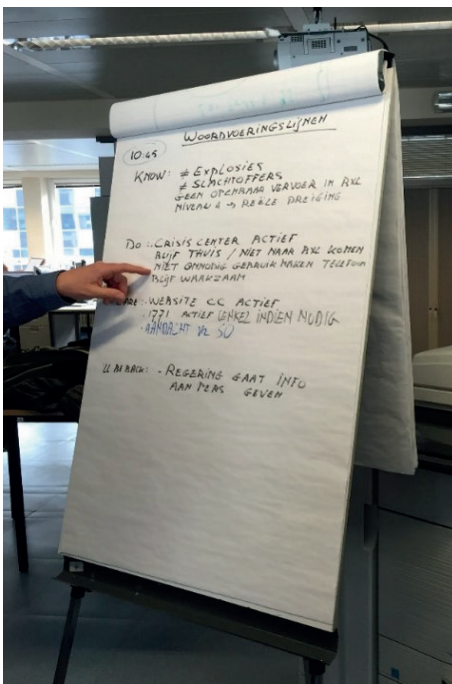 WOORDVOERINGSLIJNEN
10:45
KNOW: ≠ EXPLOSIES
≠ SLACHTOFFERS
GEEN OPENBAAR VERVOER IN BXL
NIVEAU 4 → REËLE DREIGING
DO: - CRISIS CENTER ACTIEF
BLIJF THUIS / NIET NAAR BXL KOMEN
NIET ONNODIG GEBRUIK MAKEN TELEFOON
BLIJF WAAKZAAM
ARE: - WEBSITE CC ACTIEF
- 1771 ACTIEF (ENKEL INDIEN NODIG
- AANDACHT VR SO
- REGERING GAAT INFO
AAN PERS GEVEN